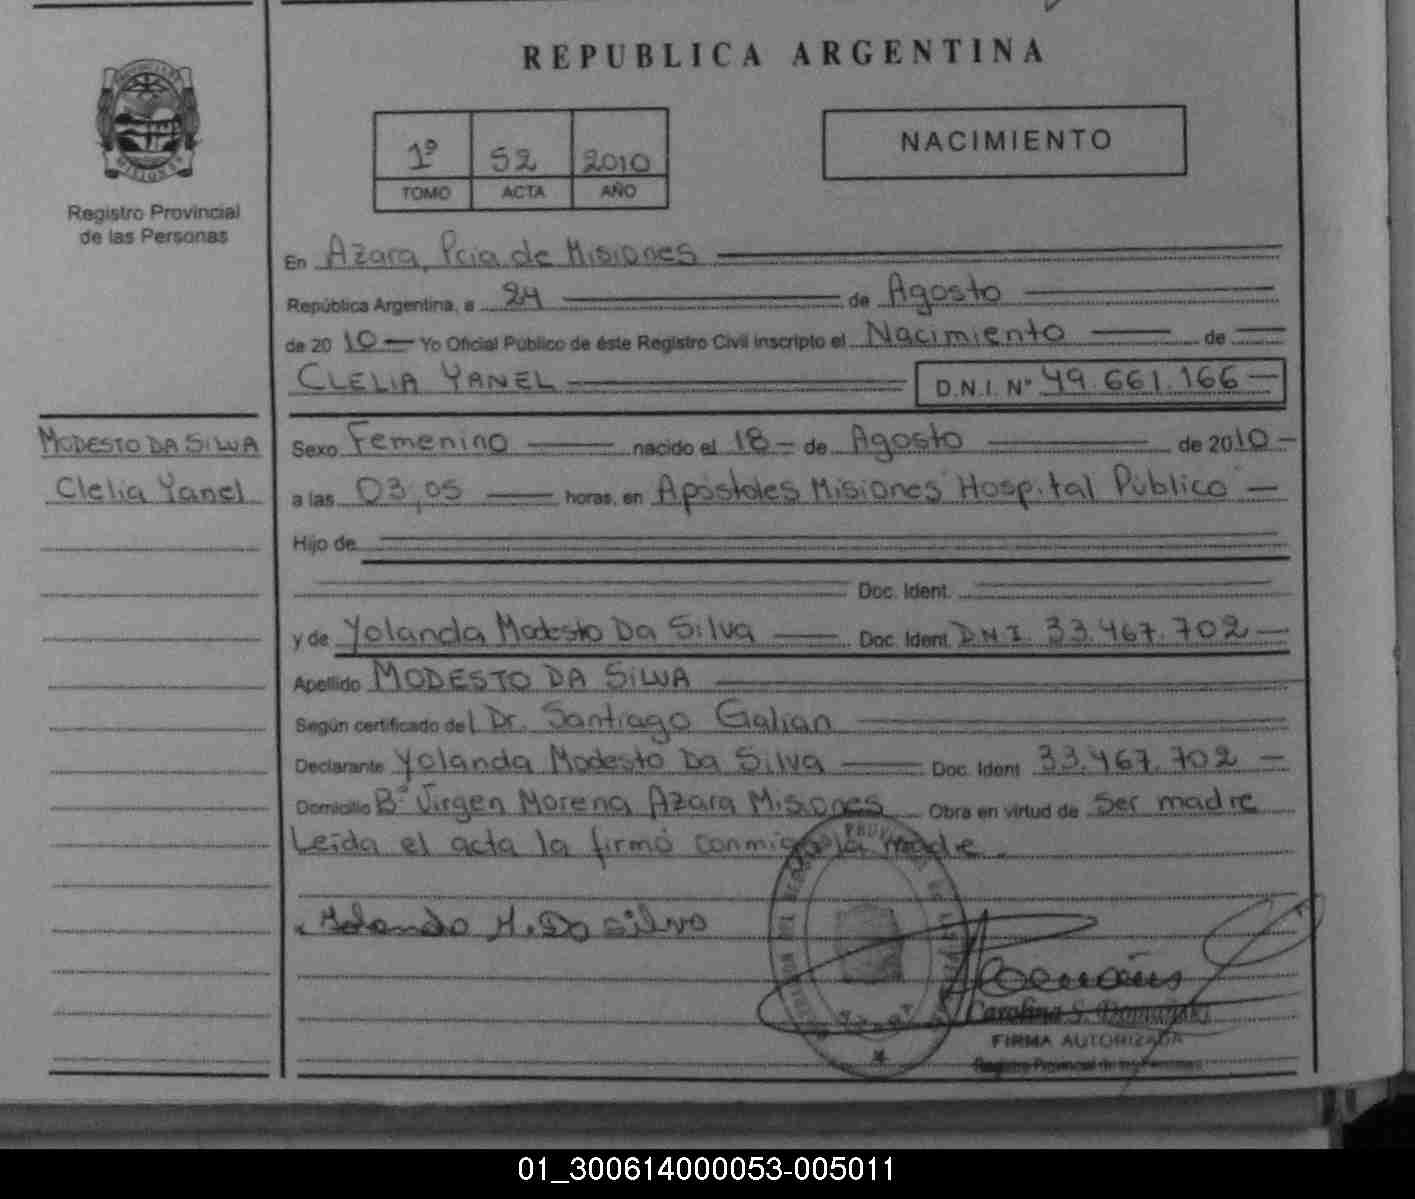 REPUBLICA ARGENTINA
1º 52 2010
TOMO ACTA AÑO
NACIMIENTO
Registro Provincial
de las Personas
En Azara, Pcia de Misiones
República Argentina, a 24 de Agosto
de 2010 Yo Oficial Público de éste Registro Civil inscripto el Nacimiento de
CLELIA YANEL D.N.I. Nº 49.661.166
MODESTO DA SILVA
Clelia Yanel
Sexo Femenino nacido el 18 de Agosto de 2010
a las 03,05 horas, en Apóstoles Misiones Hospital Público
Hijo de
Doc. Ident.
y de Yolanda Modesto Da Silva Doc. Ident. D.N.I. 33.467.702
Apellido MODESTO DA SILVA
Según certificado del Dr. Santiago Galian
Declarante Yolanda Modesto Da Silva Doc. Ident 33.467.702
Domicilio Bº Virgen Morena Azara Misiones Obra en virtud de ser madre
Leída el acta la firmó conmigo la madre.
Yolanda M. Da Silva
Carolina S.
FIRMA AUTORIZADA
Registro Provincial de las Personas
01_300614000053-005011